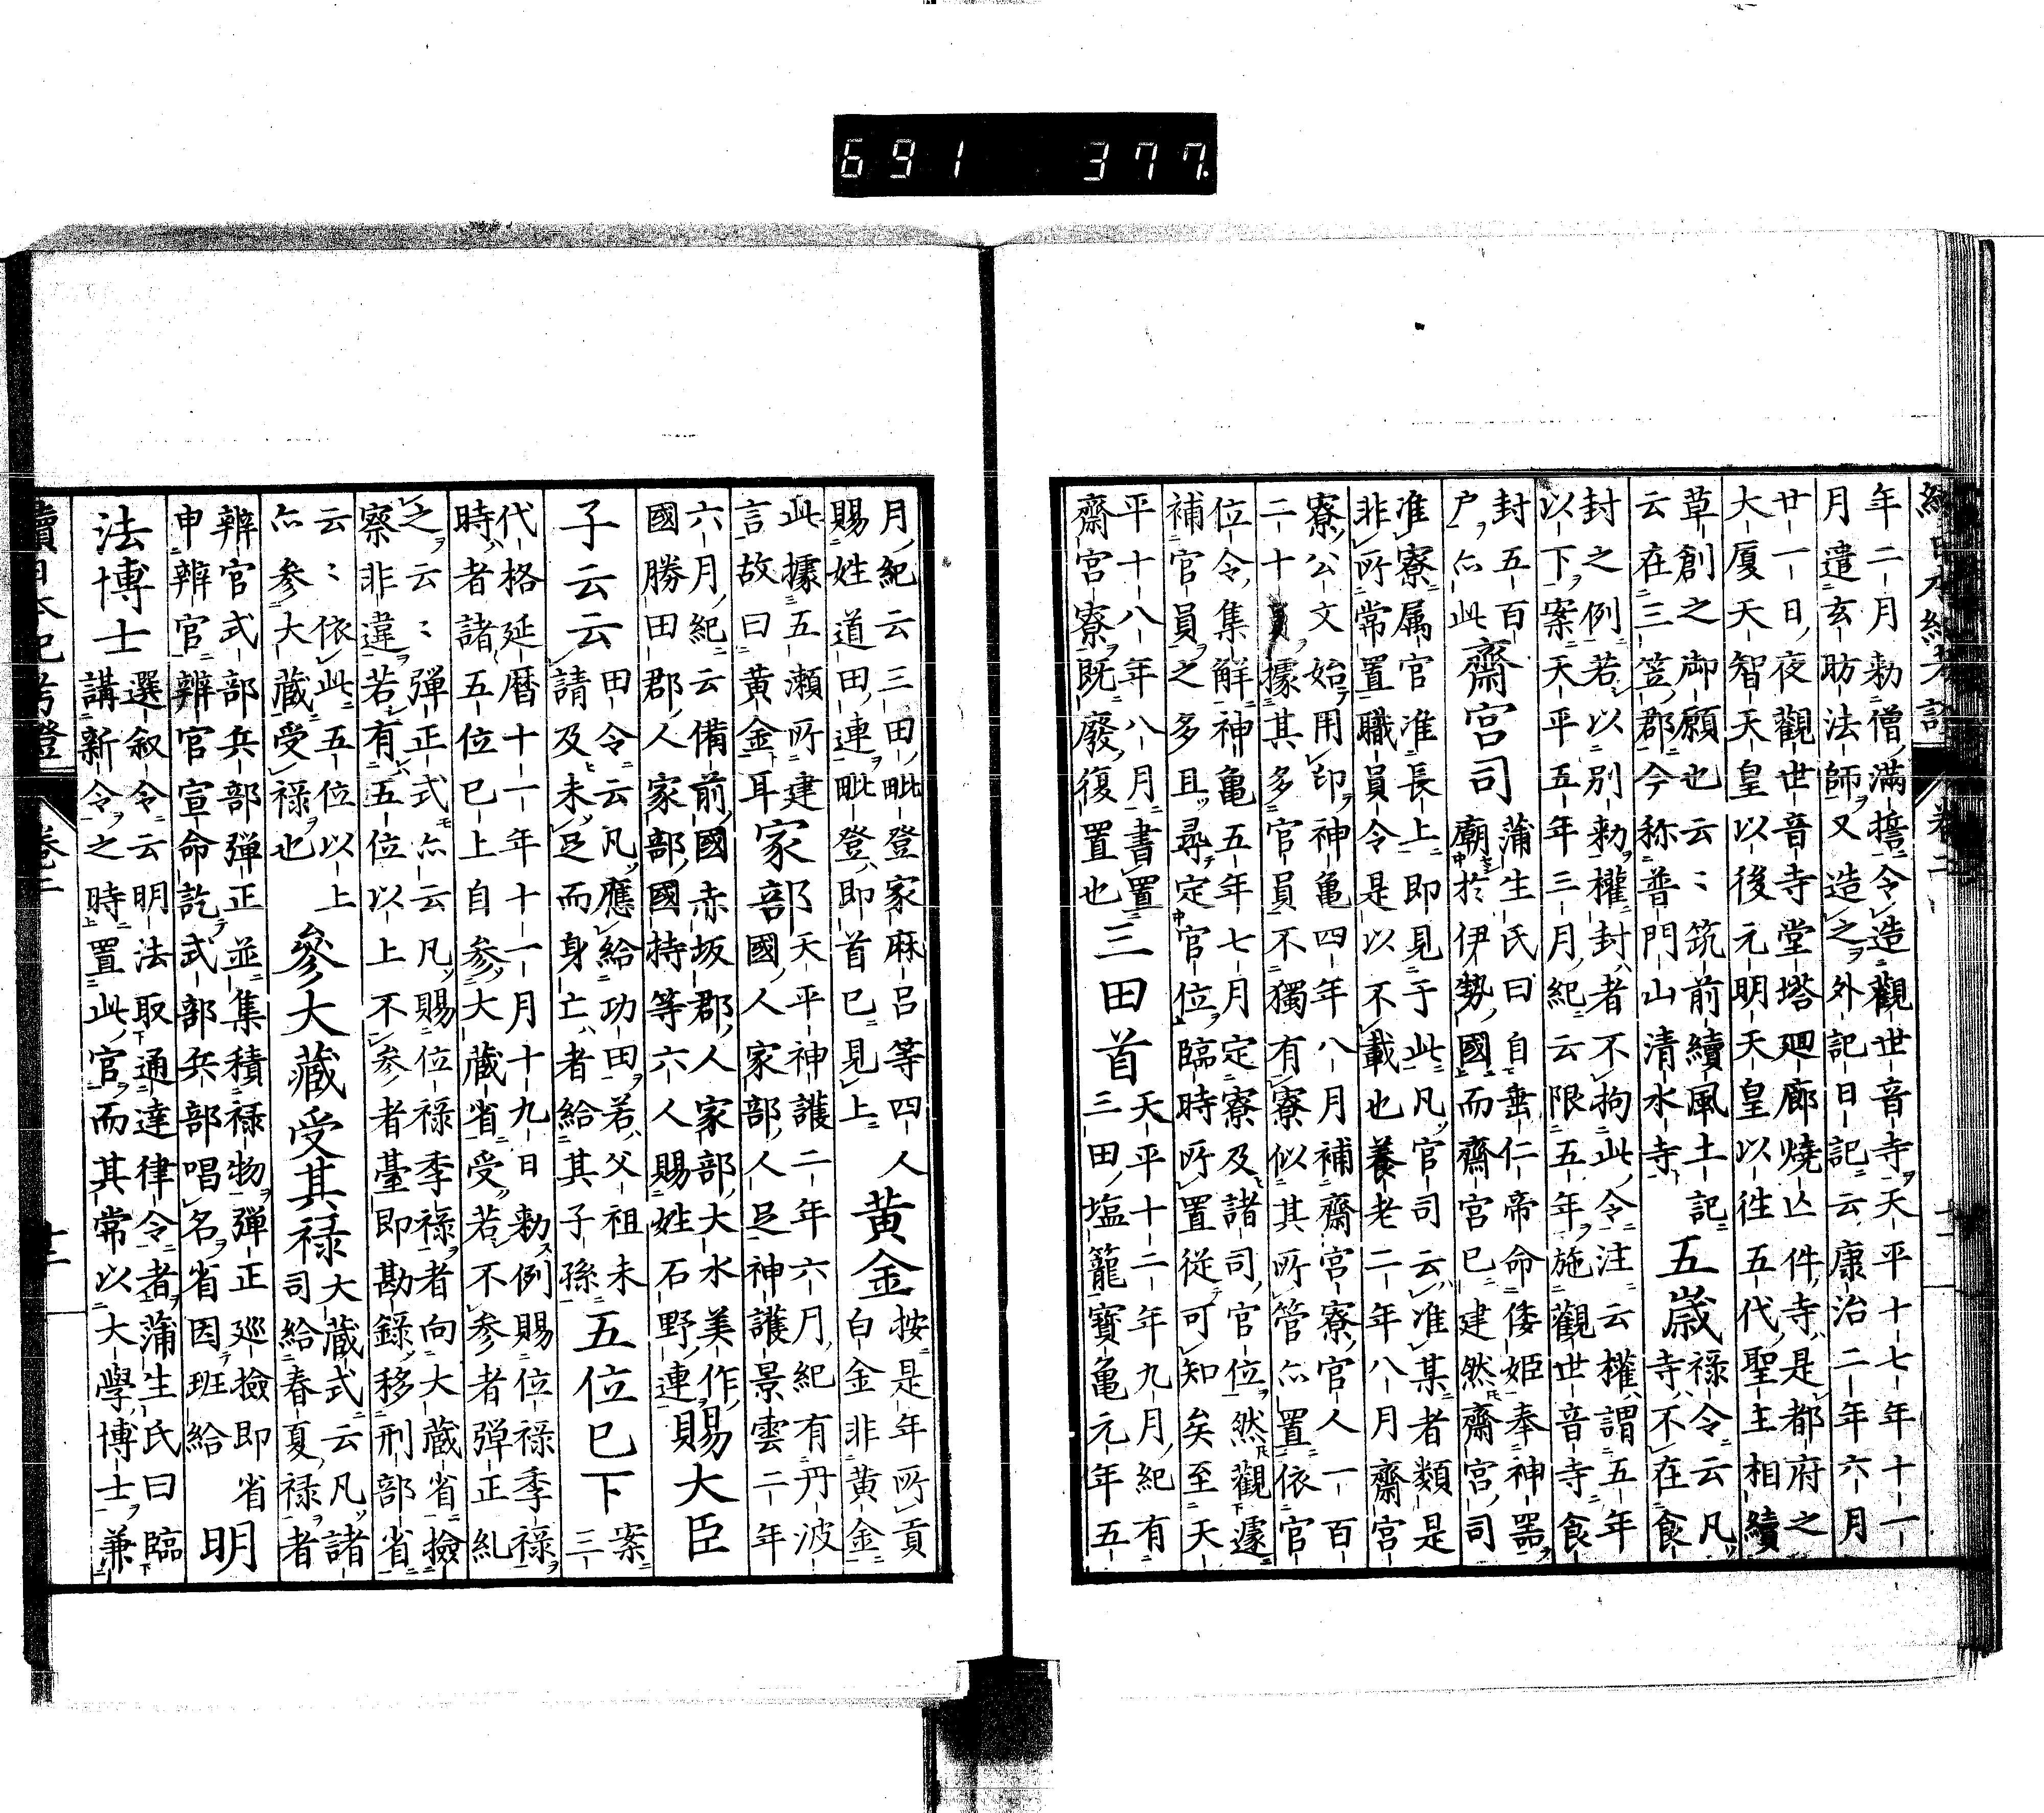 691 377.
續日本紀考證 卷二 十二
年二月勅僧滿誓令造觀世音寺天平十七年十一
月遣玄昉法師又造之外記日記云康治二年六月
廿一日夜觀世音寺堂塔廻廊燒亡件寺是都府之
大厦天智天皇以後元明天皇以徃五代聖主相續
草創之御願也云〻筑前續風土記
云在三笠郡今称普門山清水寺
五歳
祿令云凡
寺不在食
封之例若以別勅權封者不拘此令注云權謂五年
以下案天平五年三月紀云限五年施觀世音寺食
封五百
戸亦此
齋宮司
蒲生氏曰自垂仁帝命倭姫奉神器
廟於伊勢國而齋宮已建然齋宮司
准寮属官准長上即見于此凡官司云准某者類是
非所常置職員令是以不載也養老二年八月齋宮
寮公文始用印神亀四年八月補齋宮寮官人一百
二十員據其多官員不獨有寮似其所管亦置依官
位令集解神亀五年七月定寮及諸司官位然觀遽
補官員之多且尋定官位臨時所置従可知矣至天
平十八年八月書置
齋宮寮既廢復置也
三田首
天平十二年九月紀有
三田塩籠寶亀元年五
月紀云三田毗登家麻呂等四人
賜姓道田連毗登即首已見上
黄金
按是年所貢
白金非黄金
此據五瀬所建
言故曰黄金耳
家部
天平神護二年六月紀有丹波
國人家部人足神護景雲二年
六月紀云備前國赤坂郡人家部大水美作
國勝田郡人家部國持等六人賜姓石野連
賜大臣
子云云
田令云凡應給功田若父祖未
請及未足而身亡者給其子孫
五位已下
案
三
代格延暦十一年十一月十九日勅例賜位祿季祿
時者諸五位已上自參大藏省受若不參者弾正糺
之云〻弾正式亦云凡賜位祿季祿者向大藏省撿
察非違若有五位以上不参者臺即勘錄移刑部省
云〻依此五位以上
亦参大藏受祿也
參大藏受其祿
大藏式云凡諸
司給春夏祿者
辨官式部兵部弾正並集積祿物弾正巡撿即省
申辨官辨官宣命訖式部兵部唱名省因班給
明
法博士
選叙令云明法取通達律令者蒲生氏曰臨
講新令之時置此官而其常以大學博士兼
續日本紀考證 卷二 十二